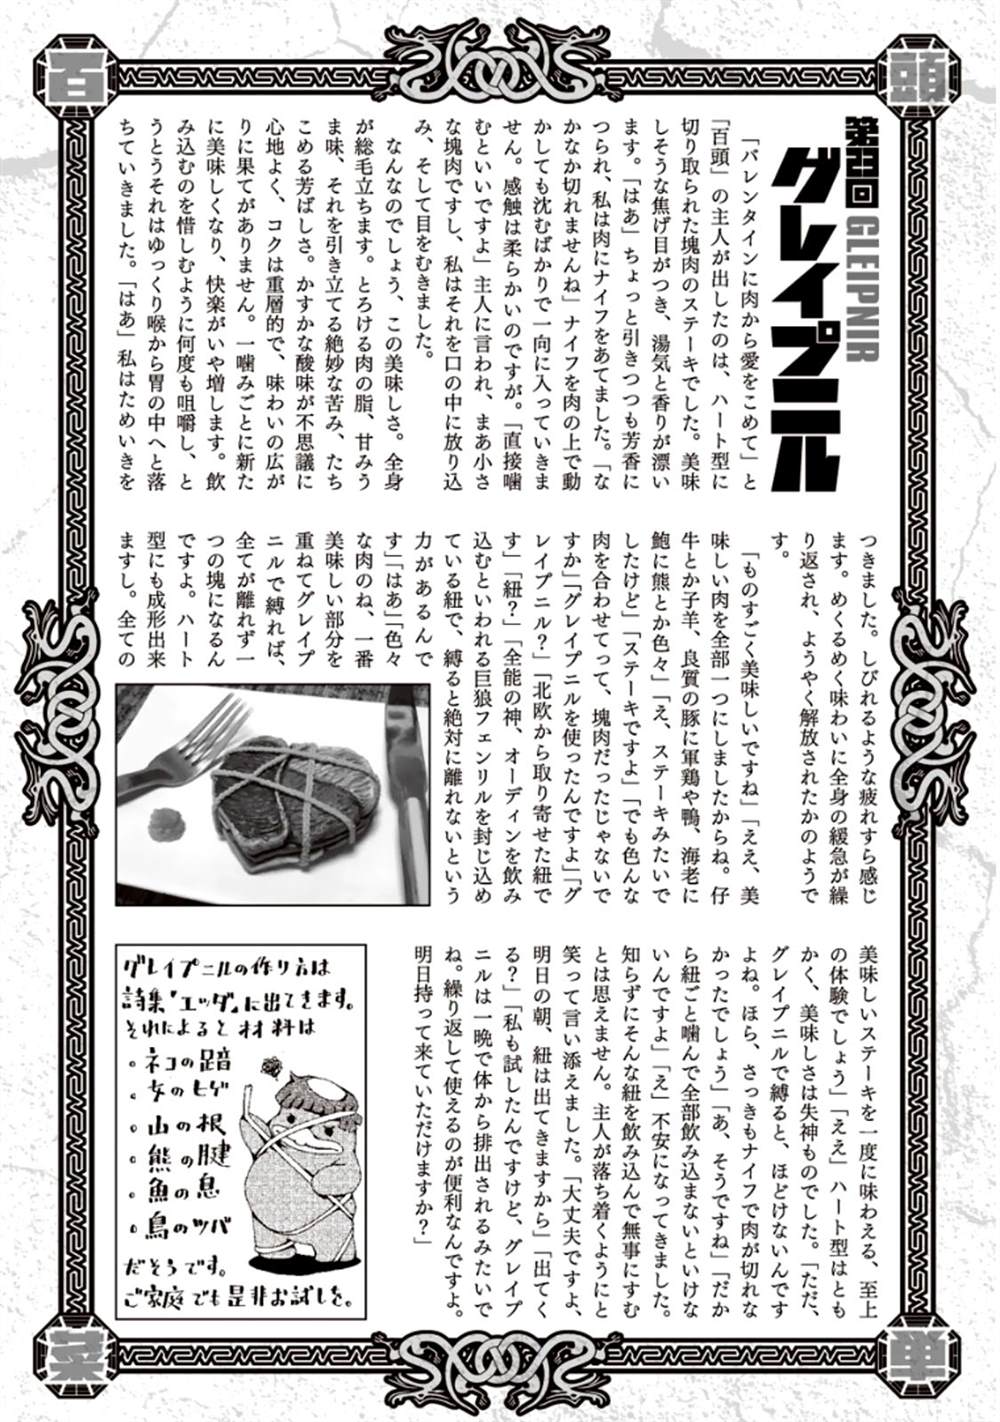 百
頭
菜
単
第弐回
GLEIPNIR
グレイプニル
「バレンタインに肉から愛をこめて」と
「百頭」の主人が出したのは、ハート型に
切り取られた塊肉のステーキでした。美味
しそうな焦げ目がつき、湯気と香りが漂い
ます。「はあ」ちょっと引きつつも芳香に
つられ、私は肉にナイフをあてました。「な
かなか切れませんね」ナイフを肉の上で動
かしても沈むばかりで一向に入っていきま
せん。感触は柔らかいのですが。「直接噛
むといいですよ」主人に言われ、まあ小さ
な塊肉ですし、私はそれを口の中に放り込
み、そして目をむきました。
なんなのでしょう、この美味しさ。全身
が総毛立ちます。とろける肉の脂、甘みう
ま味、それを引き立てる絶妙な苦み、たち
こめる芳ばしさ。かすかな酸味が不思議に
心地よく、コクは重層的で、味わいの広が
りに果てがありません。一噛みごとに新た
に美味しくなり、快楽がいや増します。飲
み込むのを惜しむように何度も咀嚼し、と
うとうそれはゆっくり喉から胃の中へと落
ちていきました。「はあ」私はためいきを
つきました。しびれるような疲れすら感じ
ます。めくるめく味わいに全身の緩急が繰
り返され、ようやく解放されたかのようで
す。
「ものすごく美味しいですね」「ええ、美
味しい肉を全部一つにしましたからね。仔
牛とか子羊、良質の豚に軍鶏や鴨、海老に
鮑に熊とか色々」「え、ステーキみたいで
したけど」「ステーキですよ」「でも色んな
肉を合わせてって、塊肉だったじゃないで
すか」「グレイプニルを使ったんですよ」「グ
レイプニル？」「北欧から取り寄せた紐で
す」「紐？」「全能の神、オーディンを飲み
込むといわれる巨狼フェンリルを封じ込め
ている紐で、縛ると絶対に離れないという
力があるんで
す」「はあ」「色々
な肉のね、一番
美味しい部分を
重ねてグレイプ
ニルで縛れば、
全てが離れず一
つの塊になるん
ですよ。ハート
型にも成形出来
ますし。全ての
美味しいステーキを一度に味わえる、至上
の体験でしょう」「ええ」ハート型はとも
かく、美味しさは失神ものでした。「ただ、
グレイプニルで縛ると、ほどけないんです
よね。ほら、さっきもナイフで肉が切れな
かったでしょう」「あ、そうですね」「だか
ら紐ごと噛んで全部飲み込まないといけな
いんですよ」「え」不安になってきました。
知らずにそんな紐を飲み込んで無事にすむ
とは思えません。主人が落ち着くようにと
笑って言い添えました。「大丈夫ですよ、
明日の朝、紐は出てきますから」「出てく
る？」「私も試したんですけど、グレイプ
ニルは一晩で体から排出されるみたいで
ね。繰り返して使えるのが便利なんですよ。
明日持って来ていただけますか？」
グレイプニルの作り方は
詩集「エッダ」に出てきます。
それによると材料は
。ネコの足音
。女のヒゲ
。山の根
。熊の腱
。魚の息
。鳥のツバ
だそうです。
ご家庭でも是非お試しを。